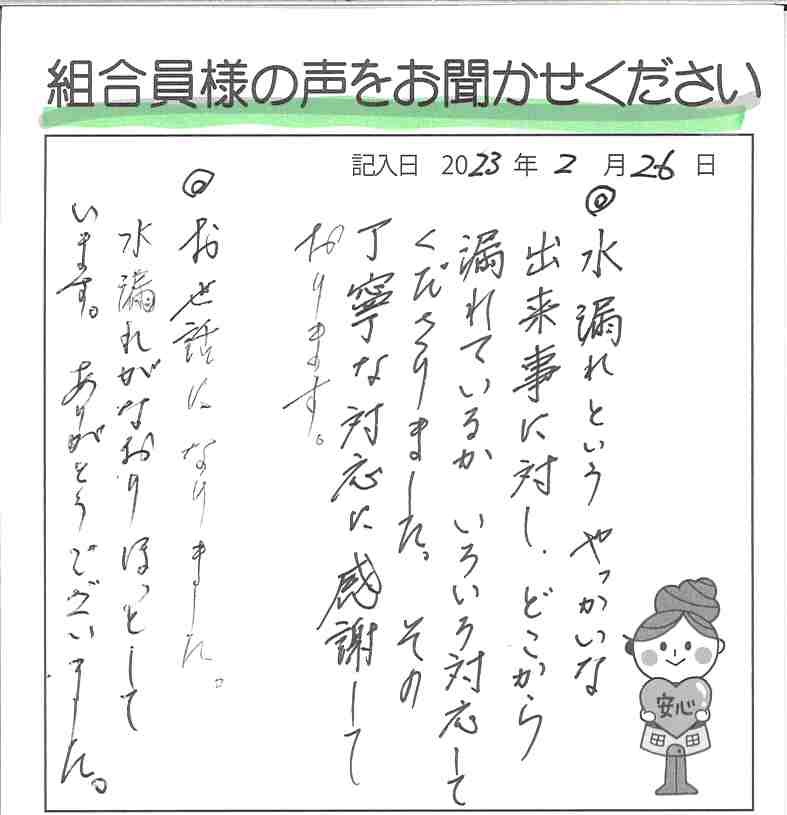 組合員様の声をお聞かせください
記入日 2023 年 2 月 26 日
◎水漏れという やっかいな
出来事に対し、どこから
漏れているか いろいろ対応して
くださりました。 その
丁寧な対応に感謝して
おります。
◎お世話になりました。
水漏れがなおり ほっとして
います。 ありがとうございました。
安心